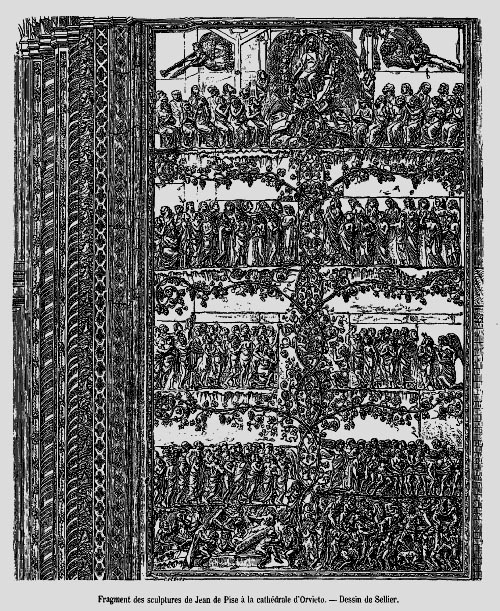 Fragment des sculptures de Jean de Pise à la cathédrale d'Orvieto. — Dessin de Sellier.